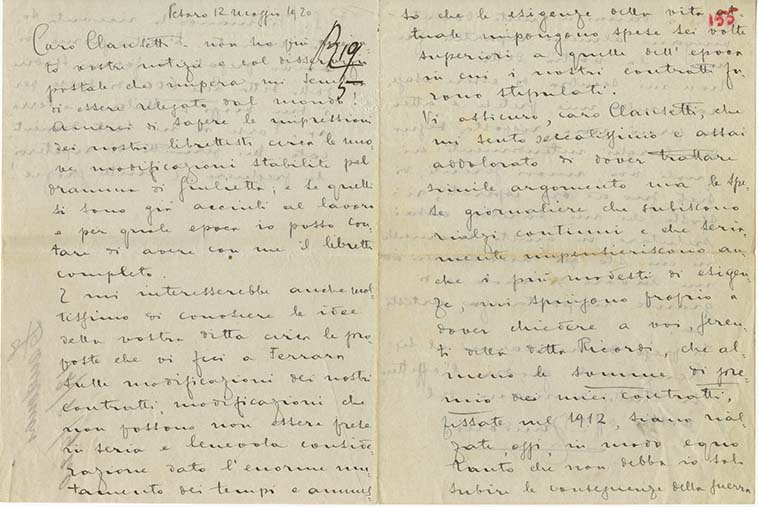 Pesaro 12 maggio 1920
R 19
5
Caro Clausetti - non ho più
to vostre notizie e col disservizio
postale che impera mi sembra
di essere relegato dal mondo!
Amerei di sapere le impressioni
dei nostri librettisti circa le nuo-
ve modificazioni stabilite pel
dramma di Giulietta; e se quelli
si sono già accinti al lavoro
e per quale epoca io posso con-
tare di avere con me il libretto
completo.
E mi interesserebbe anche mol-
tissimo di conoscere le idee
della vostra ditta circa le pro-
poste che vi feci a Ferrara
sulle modificazioni dei nostri
contratti, modificazioni che
non possono non essere prese
in seria e benevola conside-
razione dato l'enorme mu-
tamento dei tempi e ammes-
155
so che le esigenze della vita at-
tuale impongono spese sei volte
superiori a quelle dell'epoca
in cui i nostri contratti fu-
rono stipulati.
Vi assicuro, caro Clausetti, che
mi sento seccatissimo e assai
addolorato di dover trattare
simile argomento ma le spe-
se giornaliere che subiscono
rialzi continui e che seria-
mente impensieriscono an-
che i più modesti di esigen-
ze, mi spingono proprio a
dover chiedere a voi, geren-
ti della ditta Ricordi, che al-
meno le somme di pre-
mio dei miei contratti,
fissate nel 1912, siano rial-
zate, oggi, in modo equo
tanto che non debba io solo
subire le conseguenze della guerra